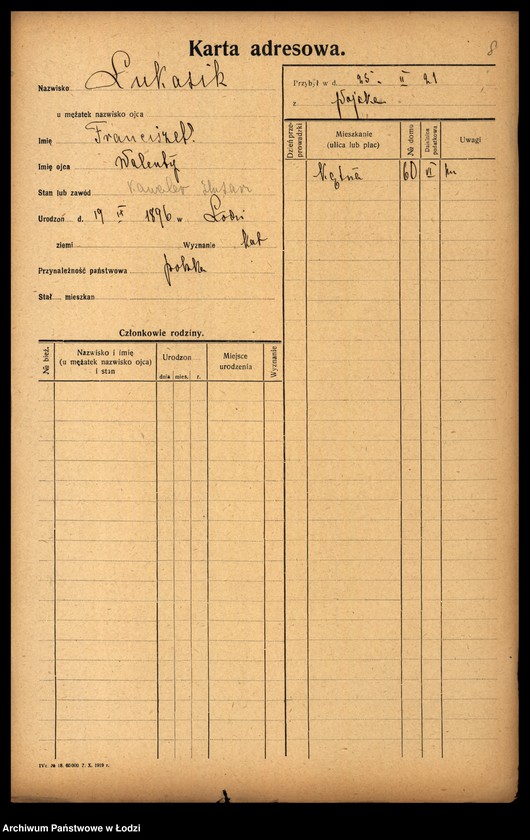 Karta adresowa.
8
Nazwisko Łukasik
u mężatek nazwisko ojca
Imię Franciszek
Imię ojca Walenty
Stan lub zawód Kawaler ślusarz
Urodzon d. 19 IX 1896 w Łodzi
ziemi Wyznanie kat
Przynależność państwowa polska
Stał. mieszkan
Przybył w d. 25 II 21
z wojska
Dzień przeprowadzki
Mieszkanie
(ulica lub plac)
№ domu
Dzielnica podatkowa
Uwagi
60 VI
Członkowie rodziny.
№ bież.
Nazwisko i imię
(u mężatek nazwisko ojca)
i stan
Urodzon
dnia mies. r.
Miejsce
urodzenia
Wyznanie
Archiwum Państwowe w Łodzi